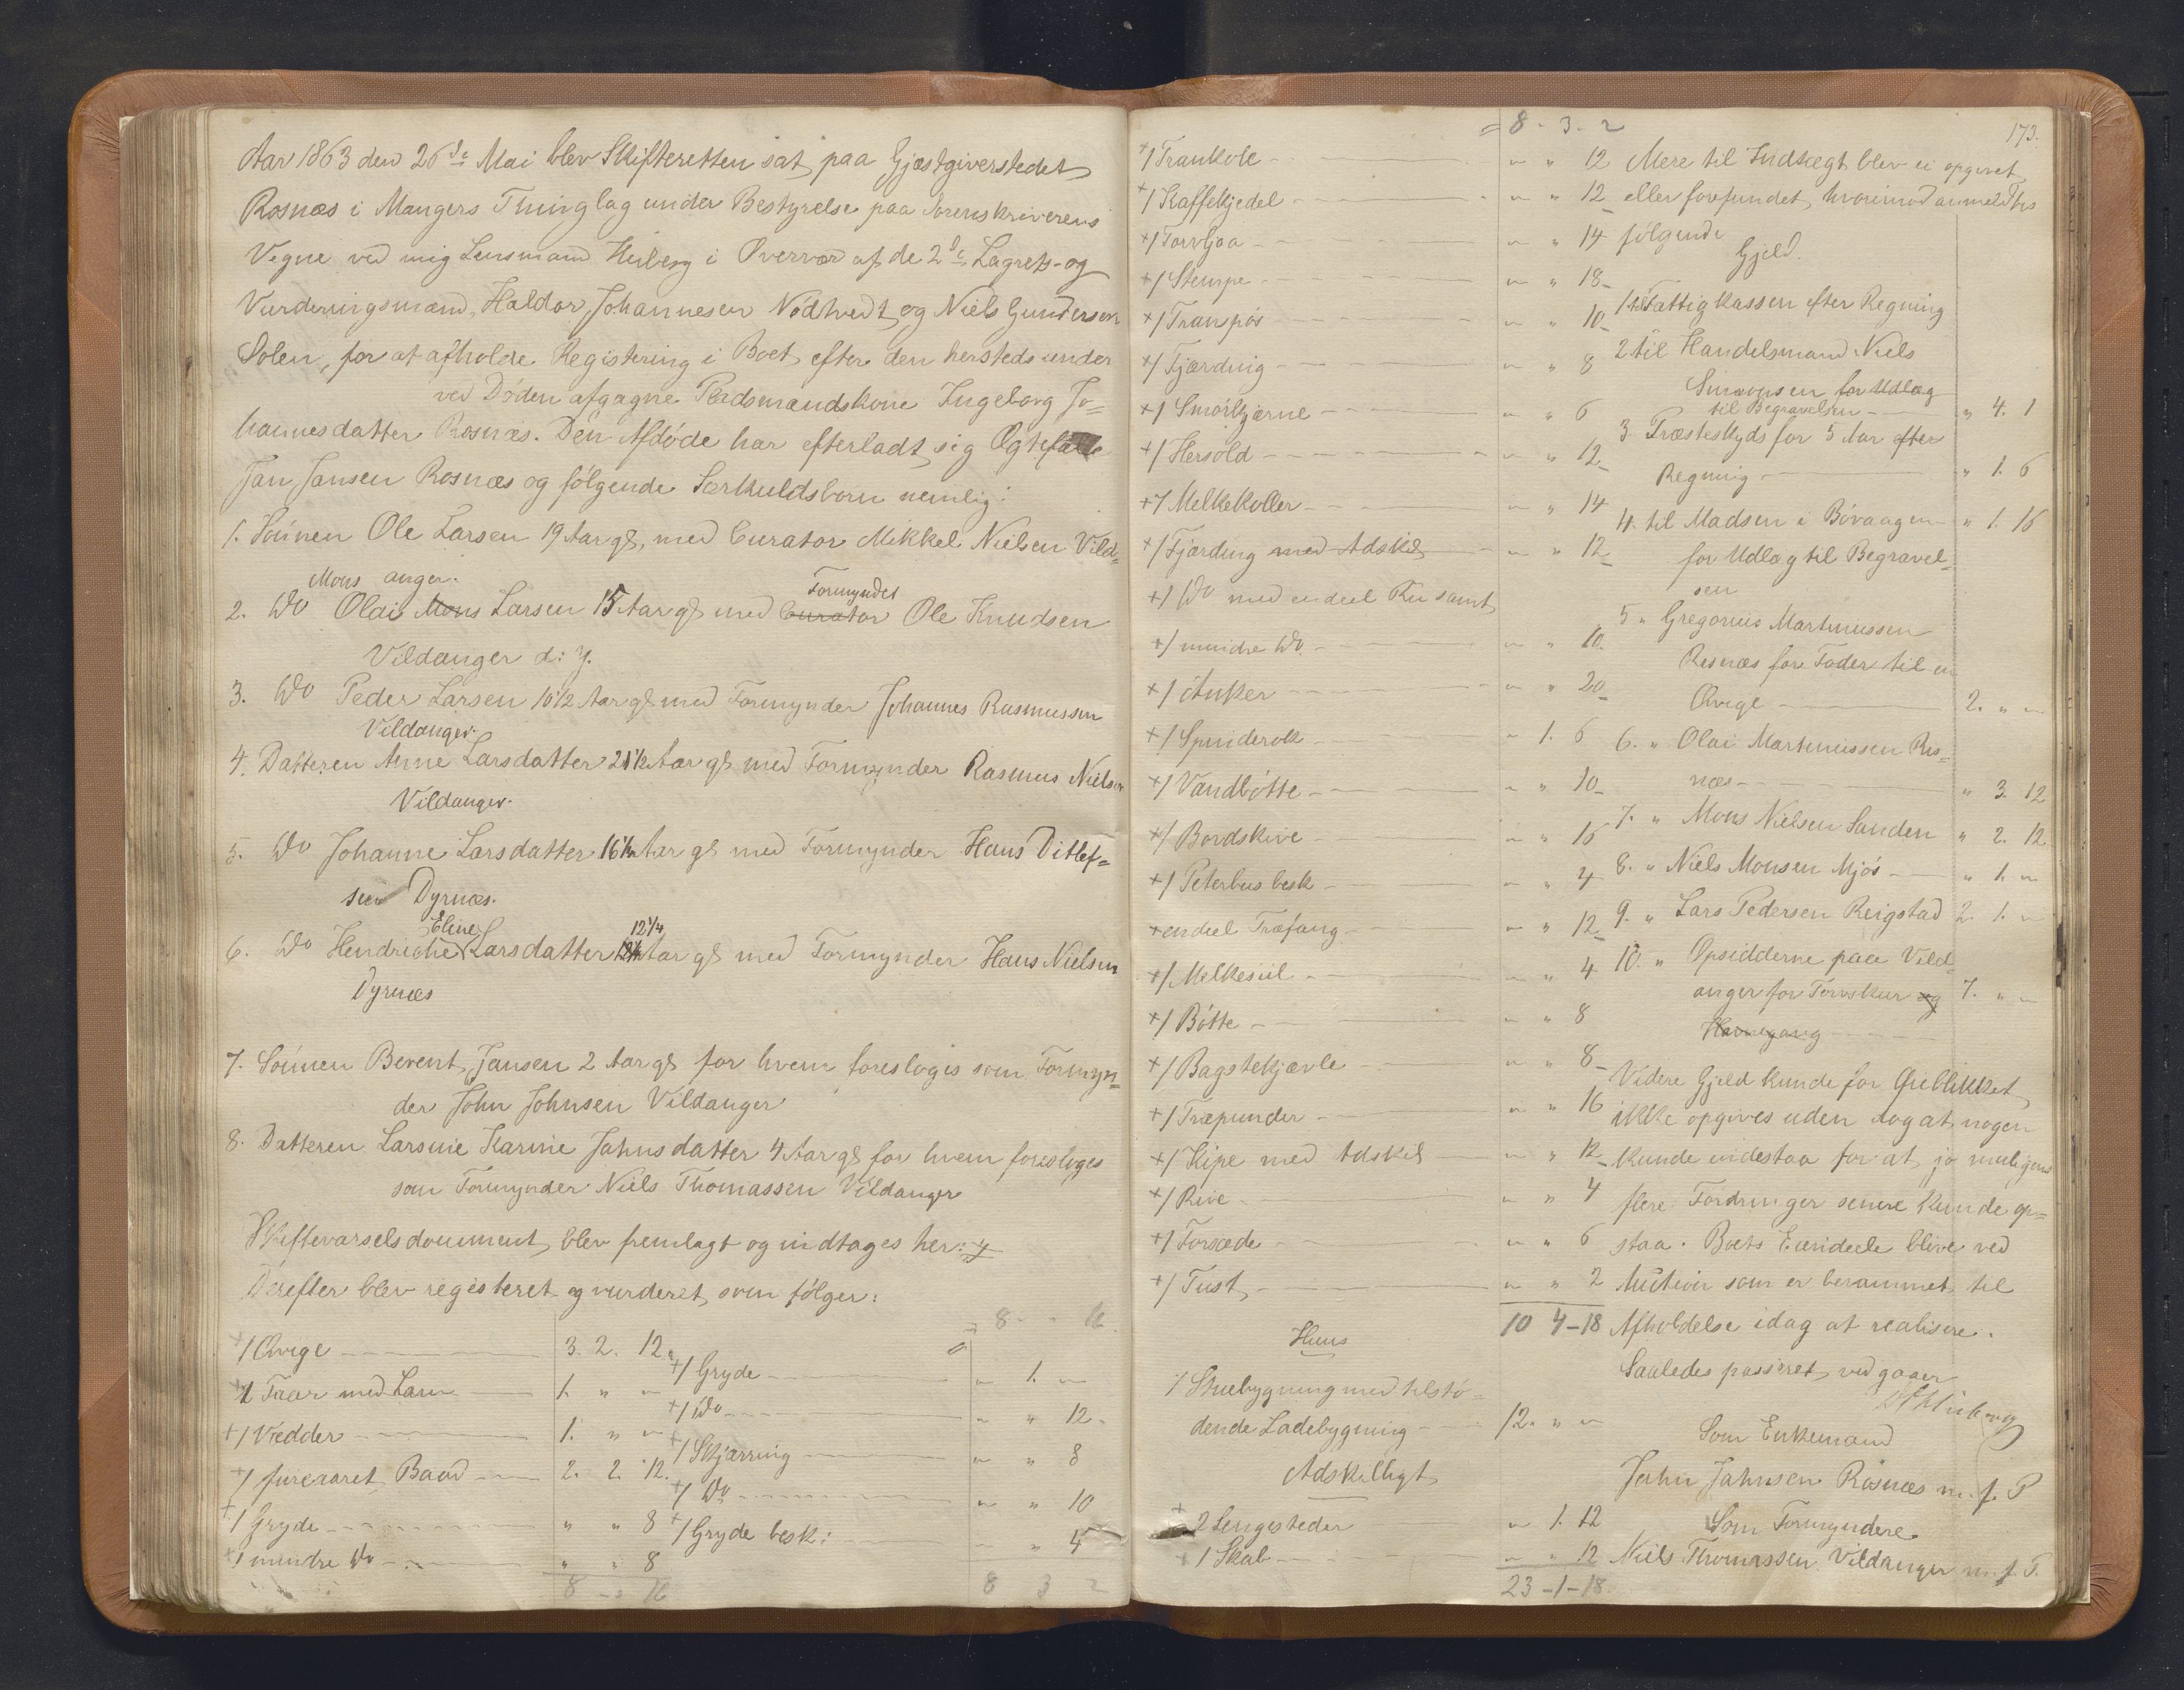 Aar 1863 den 26de Mai blev Skifteretten sat paa Gjæstgiverstedet
Rosnæs i Mangers Thinglag under Bestyrelse paa Sorenskriverens
Vegne ved mig Lensmand Heiberg i Overvær af de 2de Lagrets- og
Vurderingsmænd, Haldor Johannesen Nødtvedt og Niels Gundersen
Solen, for at afholde Registering i Boet efter den hersteds under
ved Døden afgagne Pladsmandskone Ingeborg Jo=
hannesdatter Rosnæs. Den Afdøde har efterladt sig Ægtefælle
Jan Jansen Rosnæs og følgende Særkuldsbørn nemlig:
1. Sønnen Ole Larsen 19 Aar gl, med Curator Mikkel Nielsen Vild=
anger.
Mons
2. Do Olai Mons Larsen 15 Aar gl med Curator Formynder Ole Knudsen
Vildanger d: y.
3. Do Peder Larsen 10 1/2 Aar gl med Formynder Johannes Rasmussen
Vildanger.
4. Datteren Anne Larsdatter 21 1/2 Aar gl med Formynder Rasmus Nielsen
Vildanger.
5. Do Johanne Larsdatter 16 1/2 Aar gl med Formynder Hans Ditlef=
sen Dyrnæs.
Eline 12 1/4
6. Do Hendriche Larsdatter Aar gl med Formynder Hans Nielsen
Dyrnæs
7. Sønnen Berent Jansen 2 Aar gl for hvem foresloges som Formyn=
der John Johnsen Vildanger
8. Datteren Larsine Karine Jahnsdatter 4 Aar gl for hvem foresloges
som Formynder Niels Thomassen Vildanger
Skiftevarselsdocument blev fremlagt og indtages her: 4
Derefter blev registeret og vurderet som følger:
+1 Qvige 3. 2. 12.
+2 Faar med Lam 1. " "
+1 Vædder 1. " "
+1 fireraaret Baad 2. 2. 12.
+1 Gryde " " 8
+1 mindre Do " " 8
8 - " 16
= 8 - " 16
+1 Gryde " 1. "
+1 Do " " 12.
+1 Skjærring " " 8
+1 Do " " 10
+1 Gryde besk: " " 4
8 3 2
= 8 - 3 - 2
+1 Trankole " " 12
+1 Kaffekjedel " " 12
+1 Torvljaa " " 14
+1 Stempe " " 18
+1 Tranpøs " " 10
+1 Fjærding " " 8
+1 Smørkjærne " " 6
+1 Hersold " " 12
+7 Melkekoller " " 14
+1 Fjærding med Adskil " " 12
+1 Do med endeel samt
+1 mindre Do " " 10
+1 Anker " " 20
+1 Spinderok " 1. 6
+1 Vandbøtte " " 10
+1 Bordskive " " 16
+1 Peterbus besk " " 4
+endeel Træfang " " 12
+1 Melkesiil " " 4
+1 Bøtte " " 8
+1 Bagstekjævle " " 8
+1 Træpunder " " 16
+1 Kipe med Adskil " " 12
+1 Rive " " 4
+1 Forsæde " " 6
+1 Tust " " 2
10 4 - 18
Huus
1 Stuebygning med tilstø=
dende Ladebygning 12. " "
Adskilligt
+2 Sengesteder " 1. 12
+1 Skab " " 12
23 - 1 - 18.
173.
Mere til Indtægt blev ei opgivet
eller forefundet, hvorimod anmeldtes
følgende
Gjeld.
1 til Fattigkassen efter Regning
2 til Handelsmand Niels
Simonsen for Udlæg
til Begravelsen " 4. 1
3. Præsteskyds for 5 Aar efter
Regning " 1. 6
4. til Madsen i Bøvaagen " 1. 16
for Udlæg til Begravel=
sen
5 " Gregorius Martinussen
Rosnæs for Foder til en
Qvige 2. " "
6. " Olai Martinussen Ros=
næs " 3. 12
7. " Mons Nielsen Sanden " 2. 12
8. " Niels Monsen Mjøs " 1. "
9. " Lars Pedersen Reigstad 2. 1. "
10. " Opsidderne paa Vild=
anger for Torvskur og 7. " "
Havnegang
Videre Gjeld kunde for Øieblikket
ikke opgives uden dog at nogen
kunde indestaa for at jo muligens
flere Fordringer senere kunde op=
staa. Boets Eiendeele blive ved
Auction som er berammet til
Afholdelse idag at realisere.
Saaledes passeret, vedgaaer
Heiberg
Som Enkemand
Jahn Jahnsen Rosnæs m. f. P
Som Formyndere
Niels Thomassen Vildanger m. f. P.